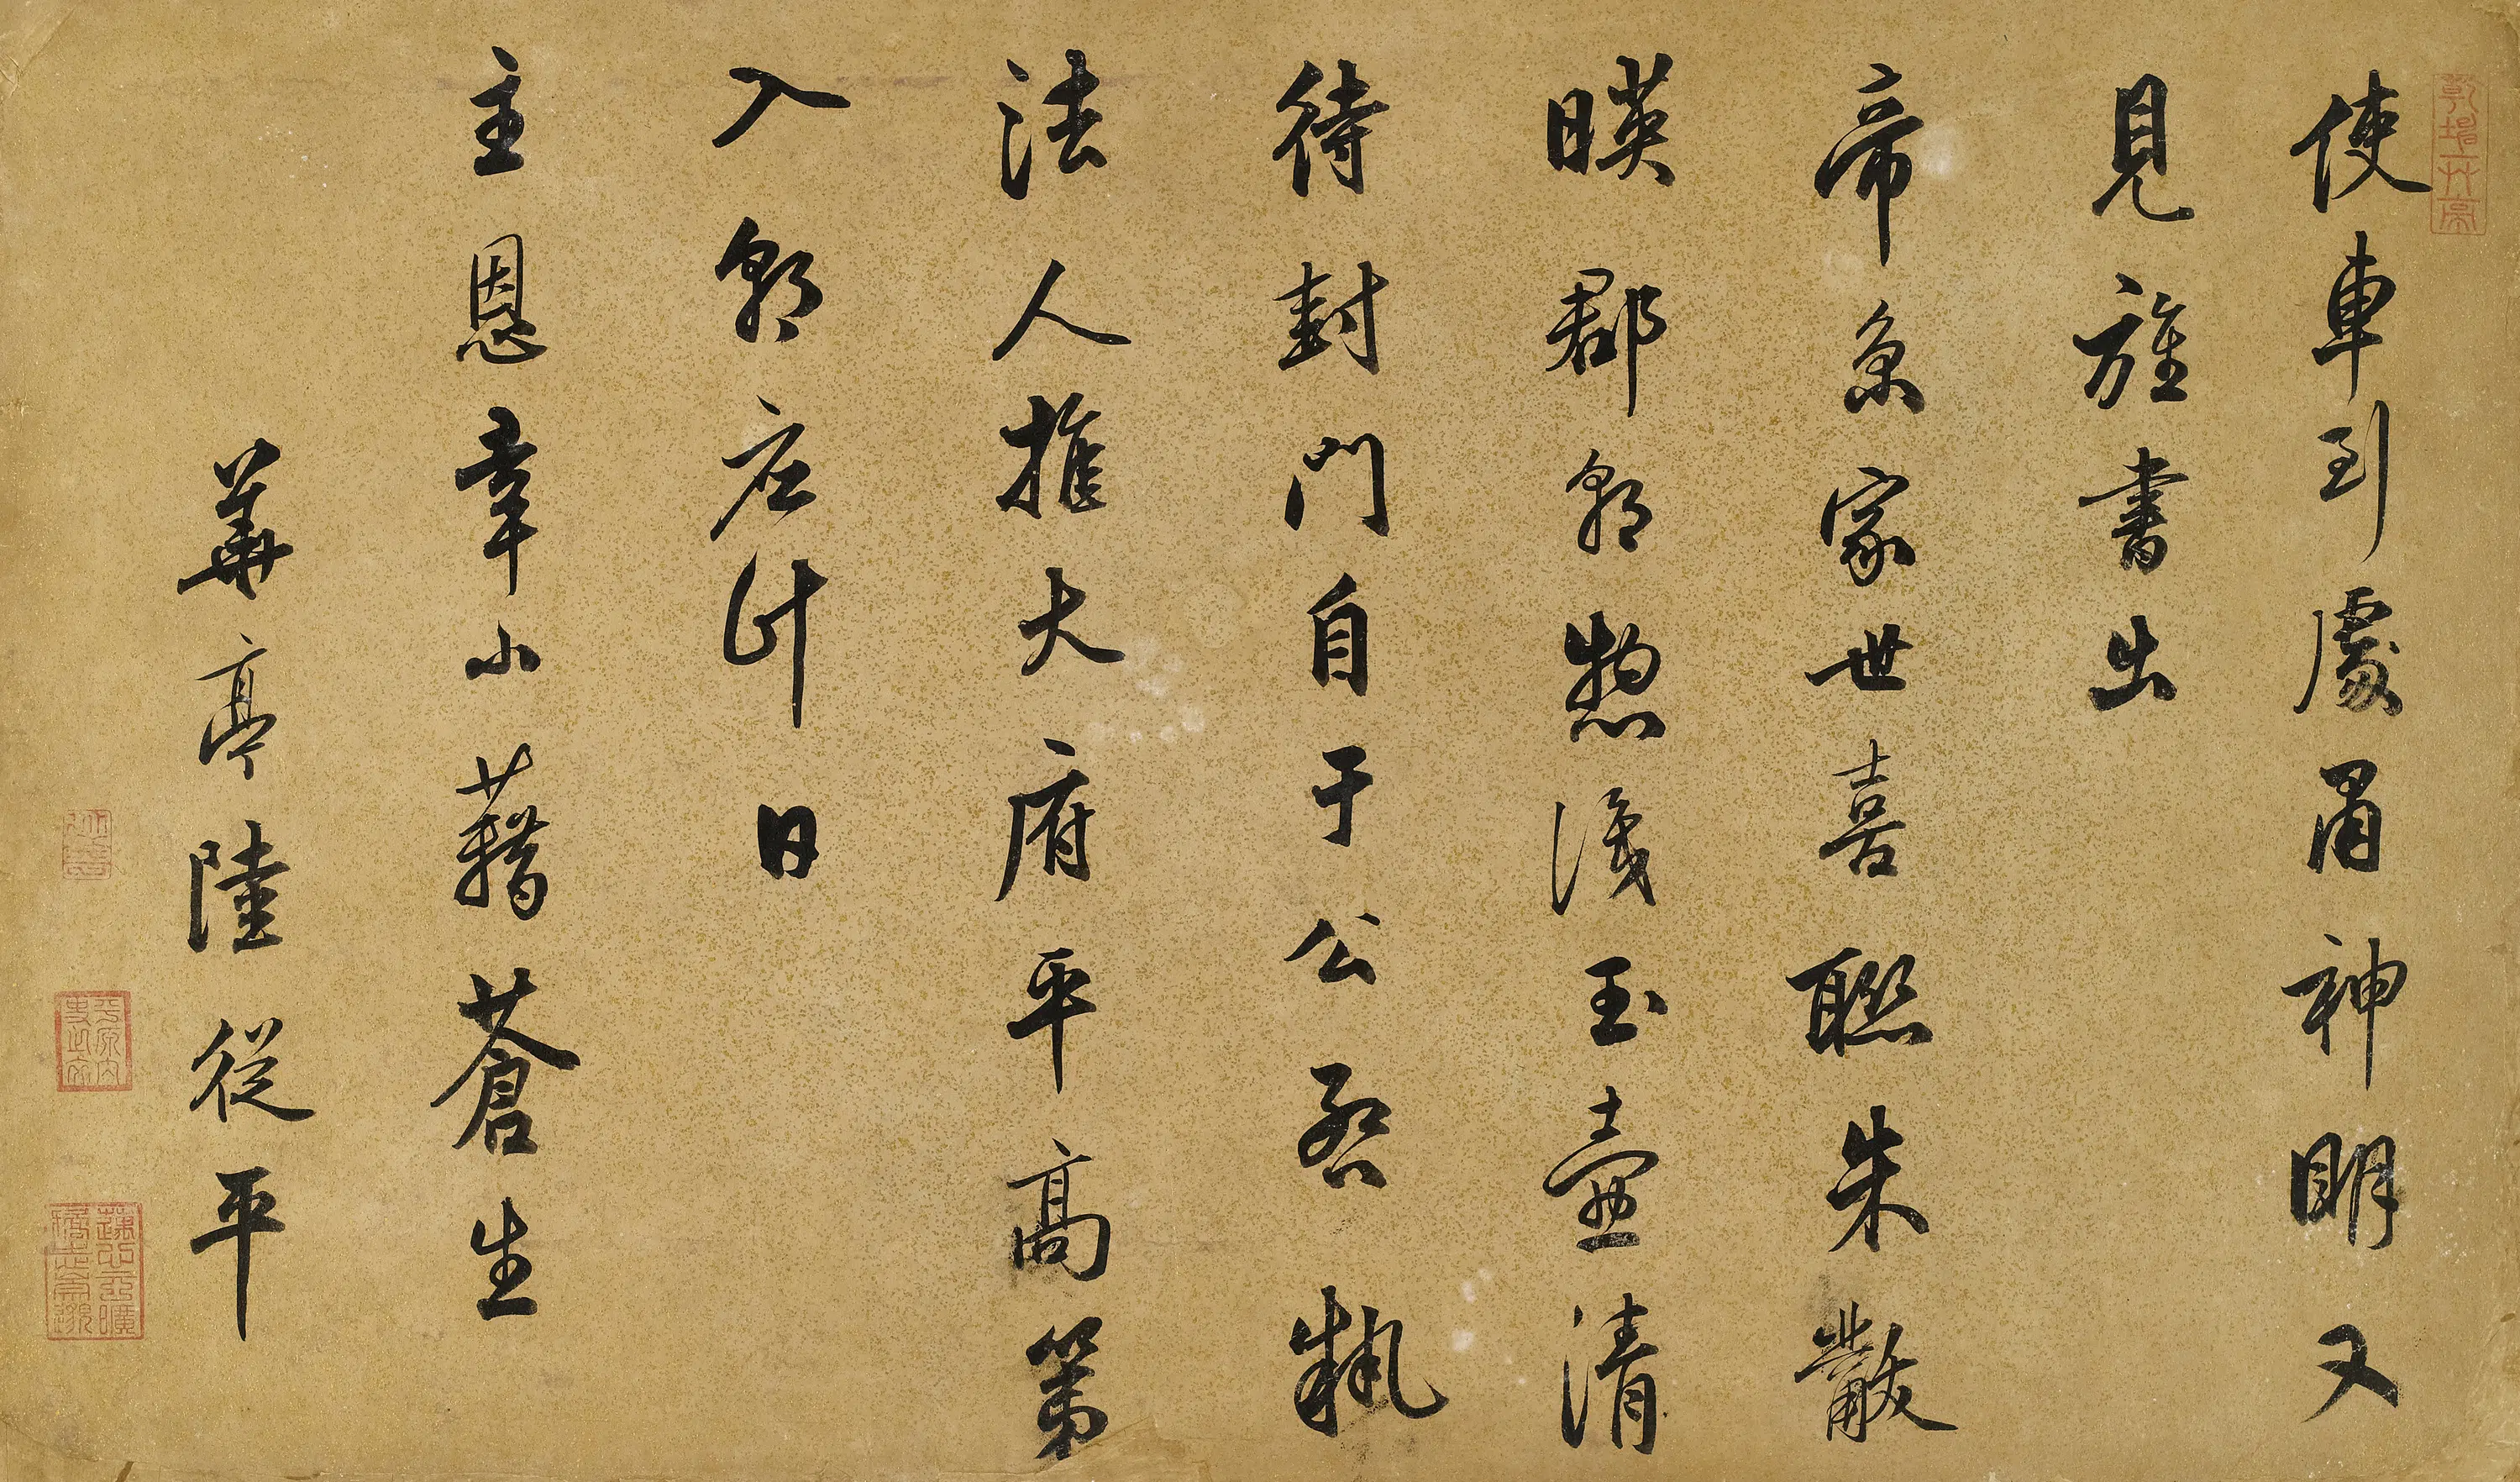 使車到處肅神明又
見旌書出
帝京家世喜聯朱黻
暎郡朝惣玉壺清
待封門自于公啓執
法人推大府平高第
入朝应計日
主恩幸小藉蒼生
華亭陸從平